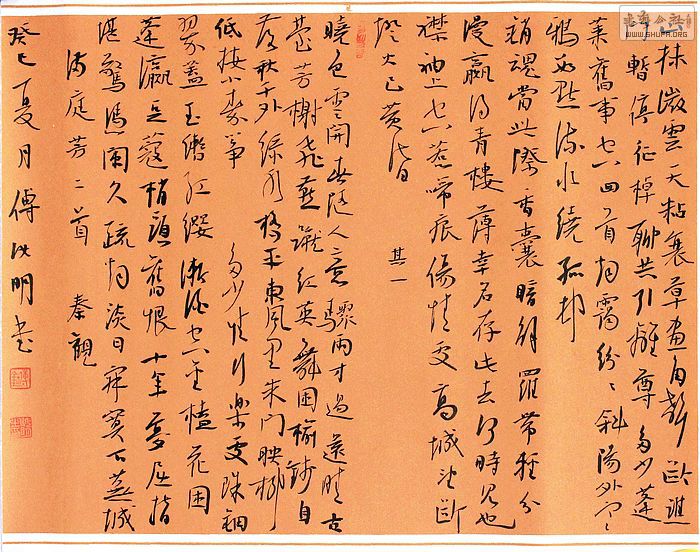 抹微雲天粘衰草畫角聲斷譙
門暫停征棹聊共引離尊多少蓬
萊舊事空回首煙靄紛々斜陽外寒
鴉數點流水繞孤村
銷魂當此際香囊暗解羅帶輕分
漫贏得青樓薄幸名存此去何時見也
襟袖上空惹啼痕傷情處高城望斷
燈火已黃昏 其一
曉色雲開春隨人意驟雨才過還晴古
臺芳榭飛燕蹴紅英舞困榆錢自
落秋千外綠水橋平東風里朱門映柳
低按小秦箏 多少情行樂處珠鈿
翠蓋玉轡紅纓漸酒空金榼花困
蓬瀛豆蔻梢頭舊恨十年夢屈指
堪驚憑闌久疏煙淡日寂寞下蕪城
滿庭芳二首 秦觀
癸巳夏月傅 明書
WWW.SHUFA.ORG